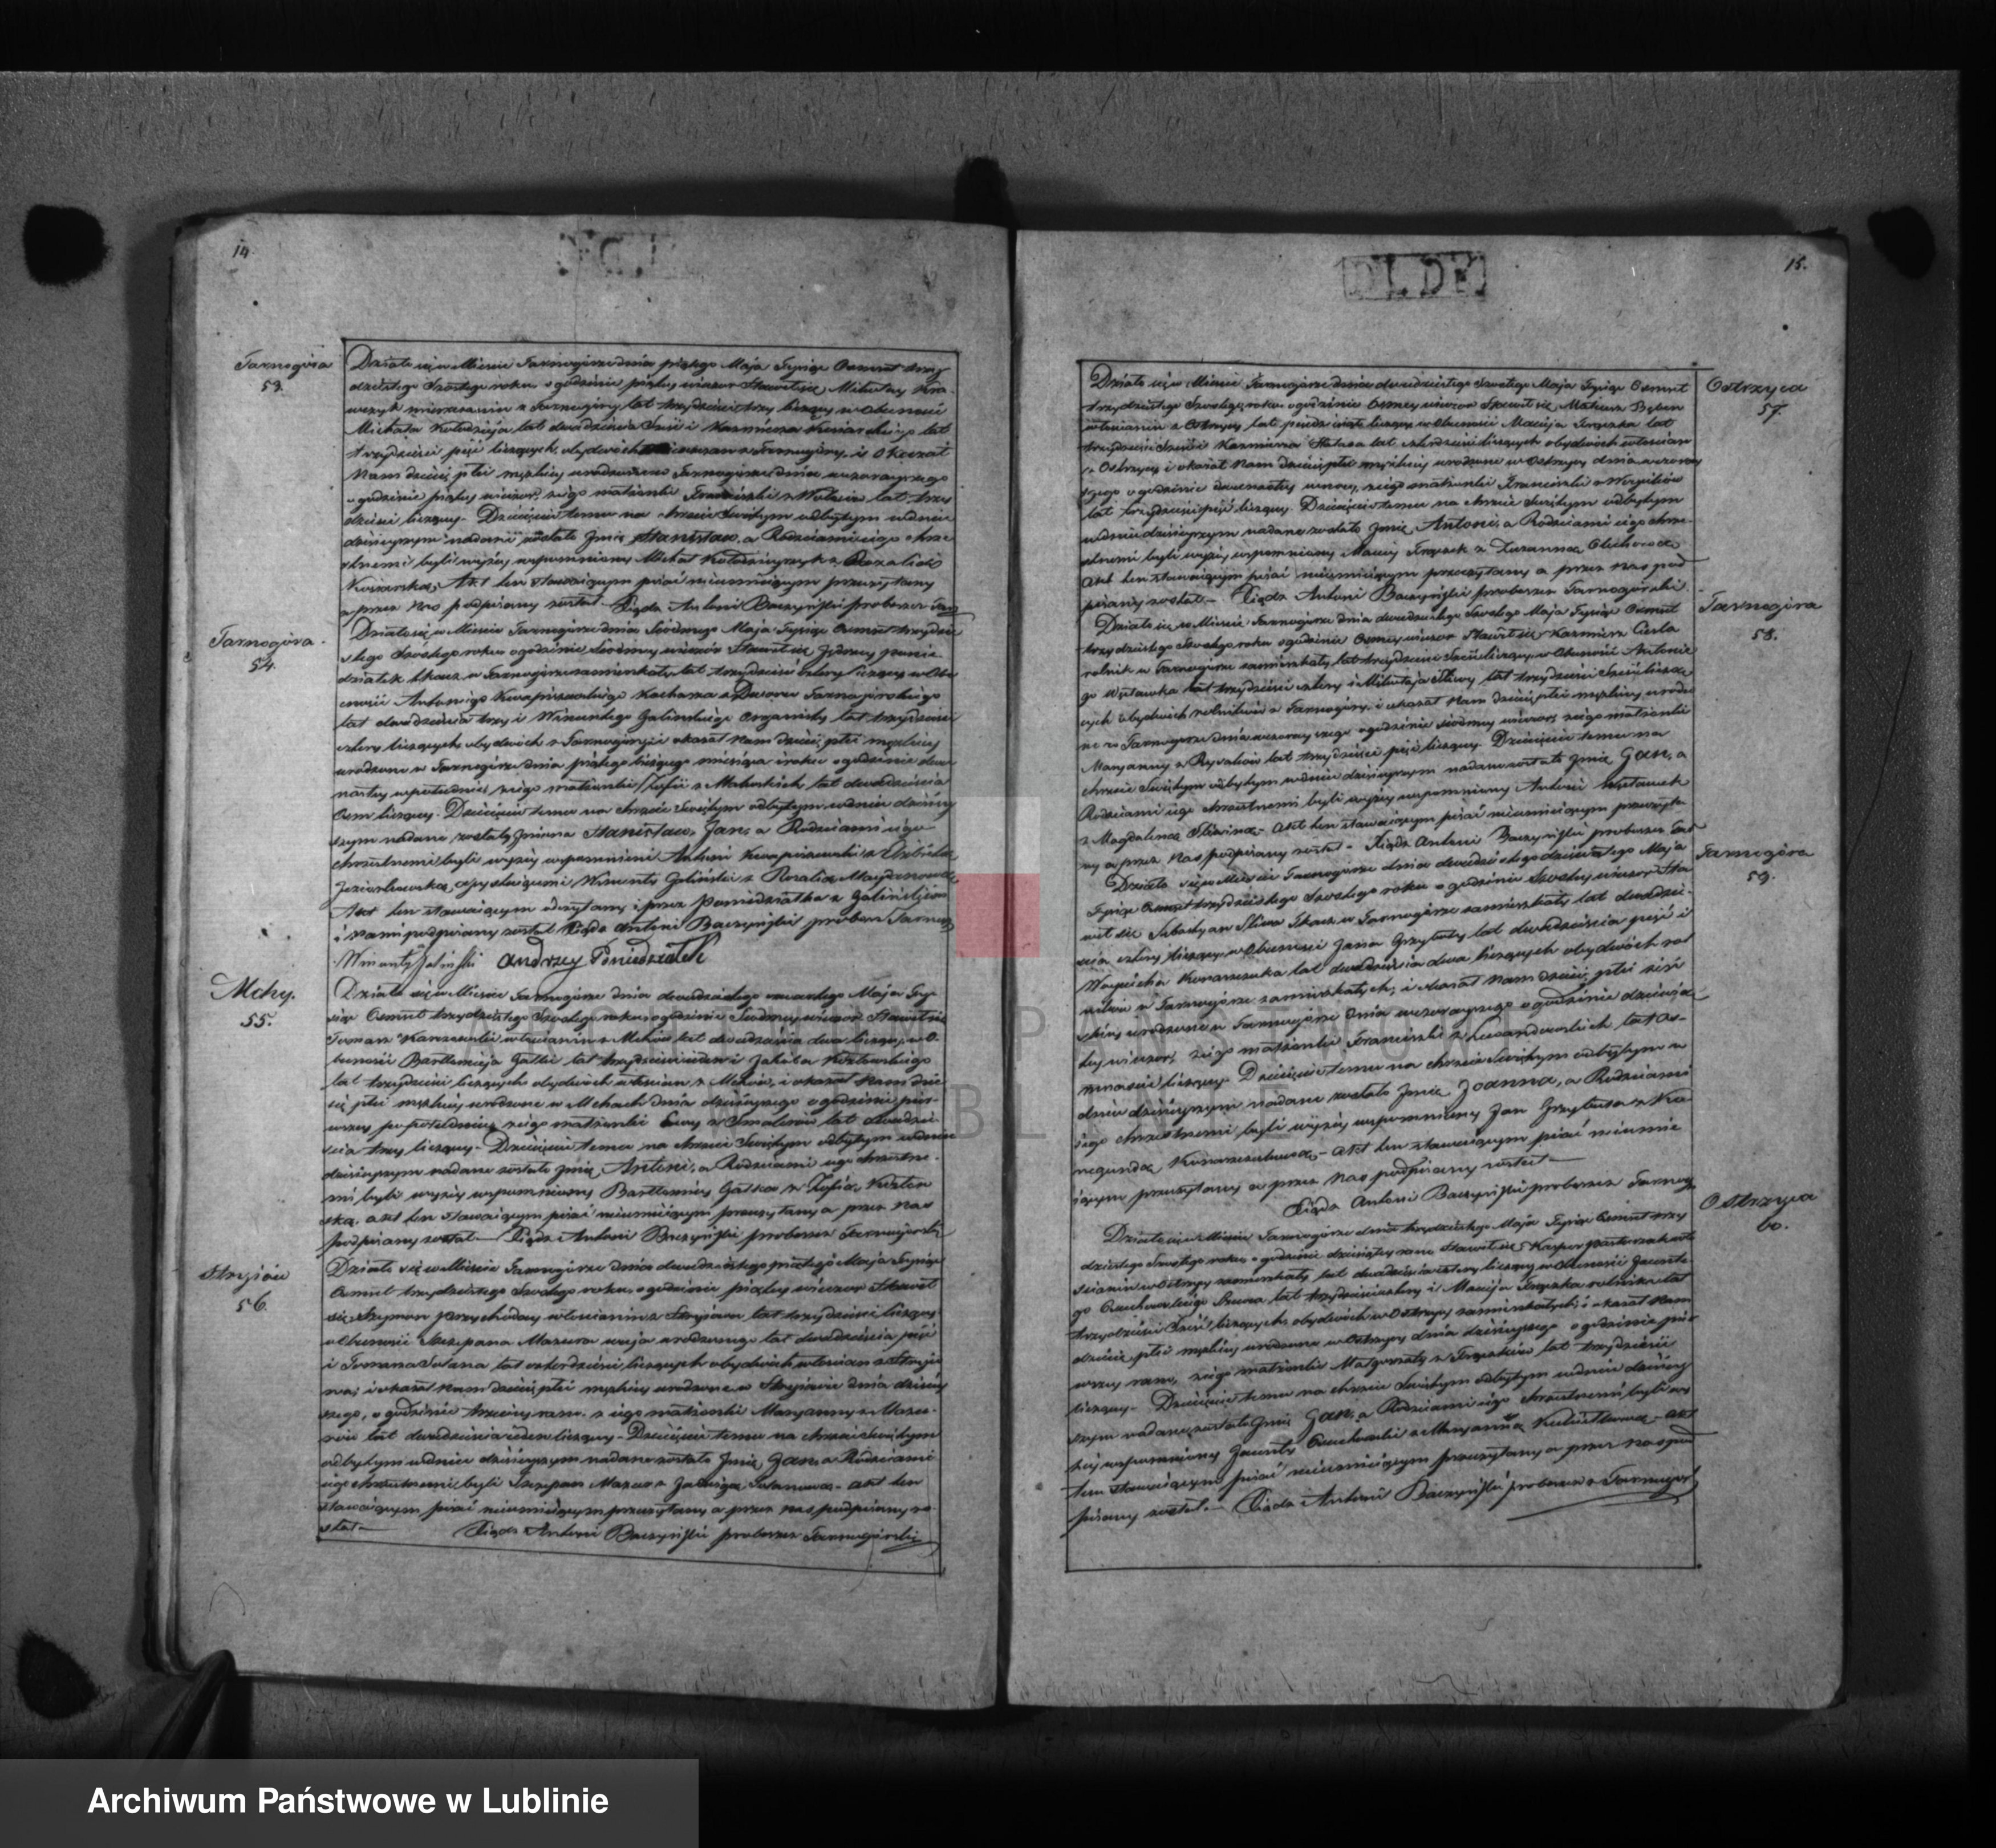 14.
Tarnogóra
53.
Działo się w Mieście Tarnogórze dnia piątego Maja Tysiąc Osmset trzy
dziestego Szóstego roku o godzinie piątey wieczor Stawił się Mikołay
mieszczanin z Tarnogóry lat trzydzieści trzy liczący w Obecności
Michała Kołodzieja lat dwadzieścia Sześć i Kazimierza lat
trzydzieści pięć liczących, obydwóch z Tarnogóry, i Okazał
Nam dziecię płci męzkiey urodzone w Tarnogórze dnia wczorayszego
o godzinie piątey wieczor, z iego małżonki Franciszki z lat trzy
dzieści liczący. Dziecięciu temu na chrzcie Świętym odbytym w dniu
dzisieyszym nadane zostało Imię Stanisław, a Rodzicami iego chrze
stnemi byli wyżey wspomniony Michał z Rozalią
Akt ten stawaiącym pisać nieumieiącym przeczytany
a przez Nas podpisany został. Xiądz Antoni Baczyński proboszcz
Tarnogóra
54.
Działo się w Mieście Tarnogórze dnia Siódmego Maja Tysiąc Osmset trzydzie
stego Szóstego roku o godzinie Siódmey wieczór Stawił się Jędrzey Ponie
działek tkacz w Tarnogórze zamieszkały lat trzydzieści cztery liczący w Obe
cności Antoniego Kwapiszewskiego Kucharza z Dworu Tarnogórskiego
lat dwadzieścia trzy i Wincentego Galinskiego Organisty lat trzydzieści
cztery liczących obydwóch z Tarnogóry i okazał Nam dziecię płci męzkiey
urodzone w Tarnogórze dnia piątego bieżącego miesiąca i roku o godzinie dwu
nastey w południe, z iego małżonki Zofii z lat dwadzieścia
Osm liczący. Dziecięciu temu na chrzcie Świętym odbytym w dniu dzisiey
szym nadane zostały Imiona Stanisław, Jan, a Rodzicami iego
chrzestnemi byli wyżey wspomnieni Antoni Kwapiszewski z Elżbietą
assystuiącymi Wincenty Galiński z Rozalią
Akt ten stawaiącym odczytany i przez Poniedziałka z Galinskim
i Nami podpisany został Xiądz Antoni Baczyński proboszcz Tarnog
Wincenty Galiński Andrzey Poniedziałek
Mchy.
55.
Działo się w Mieście Tarnogórze dnia dwudziestego czwartego Maja Tysi
iąc Osmset trzydziestego Szóstego roku o godzinie Siódmey wieczór Stawił się
Tomasz włościanin z Mchów lat dwadzieścia dwa liczący w O
becności Bartłomieja Gałki lat trzydzieści ieden i Jakóba Kozłowskiego
lat trzydzieści liczących obydwóch włościan z Mchów, i okazał Nam dzie
cię płci męzkiey urodzone w Mchach dnia dzisieyszego o godzinie pier
wszey po południu z iego małżonki Ewy z lat dwadzie
ścia trzy liczący. Dziecięciu temu na chrzcie Świętym odbytym w dniu
dzisieyszym nadane zostało Imię Antoni, a Rodzicami iego chrzestne
mi byli wyżey wspomniony Bartłomiey Gałka z Zofią
Akt ten stawaiącym pisać nieumieiącym przeczytany a przez Nas
podpisany został. Xiądz Antoni Baczyński proboszcz Tarnogórski
Stryiów
56.
Działo się w Mieście Tarnogórze dnia dwudziestego piątego Maja Tysiąc
Osmset trzydziestego Szóstego roku o godzinie piątey wieczor Stawił
się Szymon Przychodzey włościanin z Stryiowa lat trzydzieści liczący
w Obecności Szczepana Mazura lat dwadzieścia pięć
i Tomasza lat czterdzieści liczących obydwóch włościan z Stryio
wa, i okazał Nam dziecię płci męzkiey urodzone w Stryiowie dnia dzisiey
szego, o godzinie trzeciey rano, z iego małżonki Maryanny z Mazu
rów lat dwadzieścia ieden liczący. Dziecięciu temu na chrzcie Świętym
odbytym w dniu dzisieyszym nadane zostało Imię Jan a Rodzicami
iego chrzestnemi byli Szczepan Mazur z Jadwigą Akt ten
stawaiącym pisać nieumieiącym przeczytany a przez nas podpisany zo
stał Xiądz Antoni Baczyński proboszcz Tarnogórski
15.
Ostrzyca
57.
Działo się w Mieście Tarnogórze dnia dwudziestego Szóstego Maja Tysiąc Osmset
trzydziestego Szóstego roku o godzinie Osmey wieczor Stawił się Mateusz
włościanin z Ostrzycy lat pięćdziesiąt liczący w Obecności Macieja lat
trzydzieści Sześć i Kazimierza lat czterdzieści liczących obydwóch włościan
z Ostrzycy i okazał Nam dziecię płci męzkiey urodzone w Ostrzycy dnia wczoray
szego o godzinie dwunastey w nocy, z iego małżonki Franciszki z
lat trzydzieści pięć liczący. Dziecięciu temu na chrzcie Świętym odbytym
w dniu dzisieyszym nadane zostało Imię Antoni, a Rodzicami iego chrze
stnemi byli wyżey wspomniony Maciey z Zuzanną
Akt ten stawaiącym pisać nieumieiącym przeczytany a przez Nas pod
pisany został. Xiądz Antoni Baczyński proboszcz Tarnogórski
Tarnogóra
58.
Działo się w Mieście Tarnogórze dnia dwudziestego Szóstego Maja Tysiąc Osmset
trzydziestego Szóstego roku o godzinie Osmey wieczor Stawił się Kazimierz Ciesla
rolnik w Tarnogórze zamieszkały lat trzydzieści Sześć liczący w Obecności Antonie
go lat trzydzieści cztery i Mikołaja Śliwy lat trzydzieści Sześć licząc
ych obydwóch rolników z Tarnogóry, i okazał Nam dziecię płci męzkiey urodzo
ne w Tarnogórze dnia wczorayszego o godzinie siódmey wieczor, z iego małżonki
Maryanny z lat trzydzieści pięć liczący. Dziecięciu temu na
chrzcie Świętym odbytym w dniu dzisieyszym nadane zostało Imię Jan, a
Rodzicami iego chrzestnemi byli wyżey wspomniony Antoni
z Magdaleną Śliwiną. Akt ten stawaiącym pisać nieumieiącym przeczyta
ny a przez Nas podpisany został. Xiądz Antoni Baczyński proboszcz Tar
Tarnogóra
59.
Działo się w Mieście Tarnogórze dnia dwudziestego dziewiątego Maja
Tysiąc Osmset trzydziestego Szóstego roku o godzinie Szóstey wieczor Sta
wił się Sebastyan Śliwa Tkacz w Tarnogórze zamieszkały lat dwadzie
ścia cztery liczący w Obecności Jana Grzybuty lat dwadzieścia pięć i
Woyciecha lat dwadzieścia dwa liczących obydwóch rol
ników w Tarnogórze zamieszkałych, i okazał Nam dziecię płci żeń
skiey urodzone w Tarnogórze dnia wczorayszego o godzinie dziewią
tey wieczor, z iego małżonki Franciszki z Lewandowskich lat Os
mnaście liczący. Dziecięciu temu na chrzcie Świętym odbytym w
dniu dzisieyszym nadane zostało Imię Joanna, a Rodzicami
iego chrzestnemi byli wyżey wspomniony Jan Grzybuta z Ku
negundą Akt ten stawaiącym pisać nieumie
iącym przeczytany a przez Nas podpisany został
Xiądz Antoni Baczyński proboszcz Tarnog
Ostrzyca
60.
Działo się w Mieście Tarnogórze dnia trzydziestego Maja Tysiąc Osmset trzy
dziestego Szóstego roku o godzinie dziesiątey rano Stawił się Kasper
w Ostrzycy zamieszkały lat dwadzieścia cztery liczący w Obecności Jacente
go lat trzydzieści cztery i Macieja rolnika lat
trzydzieści Sześć liczących obydwóch w Ostrzycy zamieszkałych, i okazał Nam
dziecię płci męzkiey urodzone w Ostrzycy dnia dzisieyszego o godzinie pier
wszey rano, z iego małżonki Małgorzaty z lat trzydzieści
liczący. Dziecięciu temu na chrzcie Świętym odbytym w dniu dzisiey
szym nadane zostało Imię Jan, a Rodzicami iego chrzestnemi byli wy
żey wspomniony Jacenty z Maryanną Akt
ten stawaiącym pisać nieumieiącym przeczytany a przez Nas pod
pisany został. Xiądz Antoni Baczyński proboszcz Tarnogor
ARCHIWUM PAŃSTWOWE
W LUBLINIE
Archiwum Państwowe w Lublinie